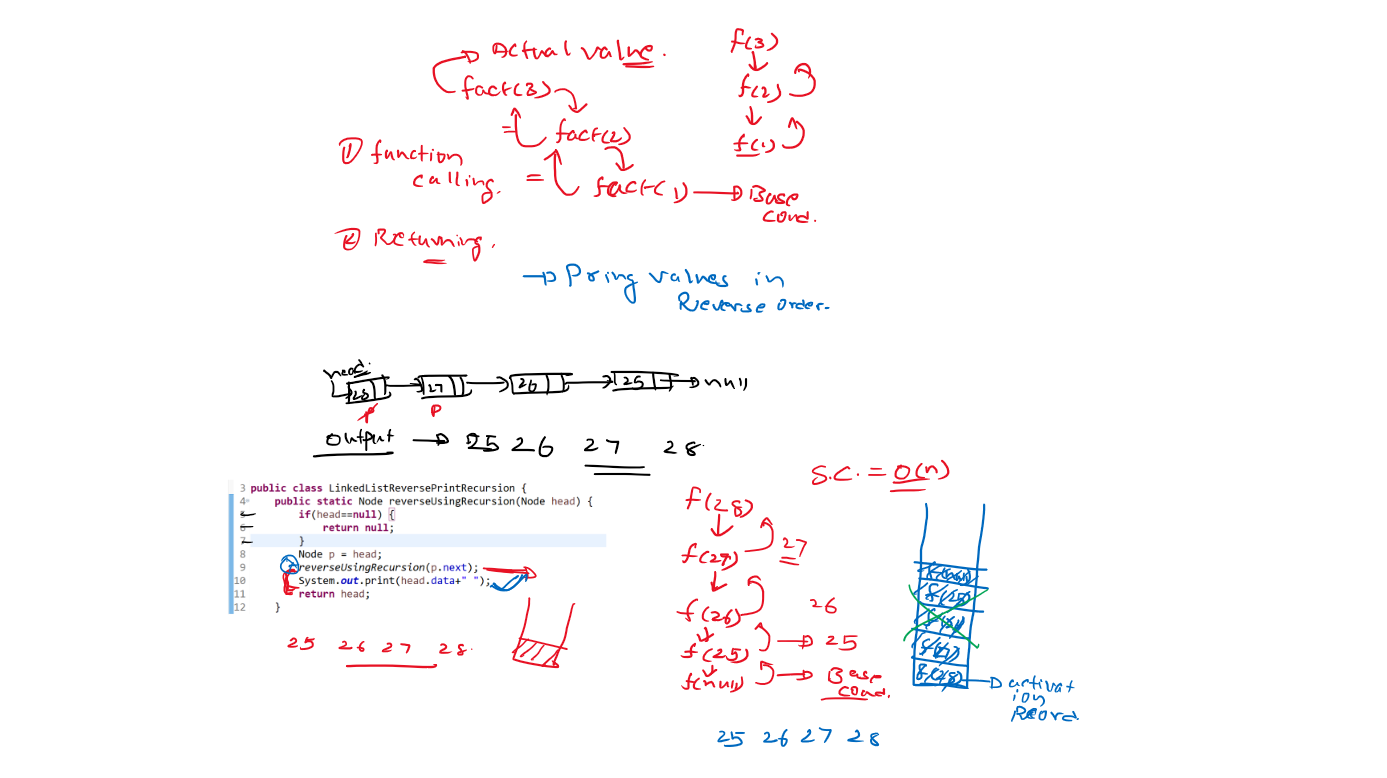 Actual value.
fact(3)
fact(2)
fact(1) Base
cond.
f(3)
f(2)
f(1)
① function
calling.
② Returning.
Pring values in
Reverse order.
head.
28 27 26 25 null
P P
output 25 26 27 28
3 public class LinkedListReversePrintRecursion {
4 public static Node reverseUsingRecursion(Node head) {
5 if(head==null) {
6 return null;
7 }
8 Node p = head;
9 reverseUsingRecursion(p.next);
10 System.out.print(head.data+" ");
11 return head;
12 }
25 26 27 28.
S.C. = O(n)
f(28)
f(27) 27
f(26) 26
f(25) 25
f(null) Base
cond.
25 26 27 28
f(null)
f(25)
f(27)
f(28) activat
ion
Record.